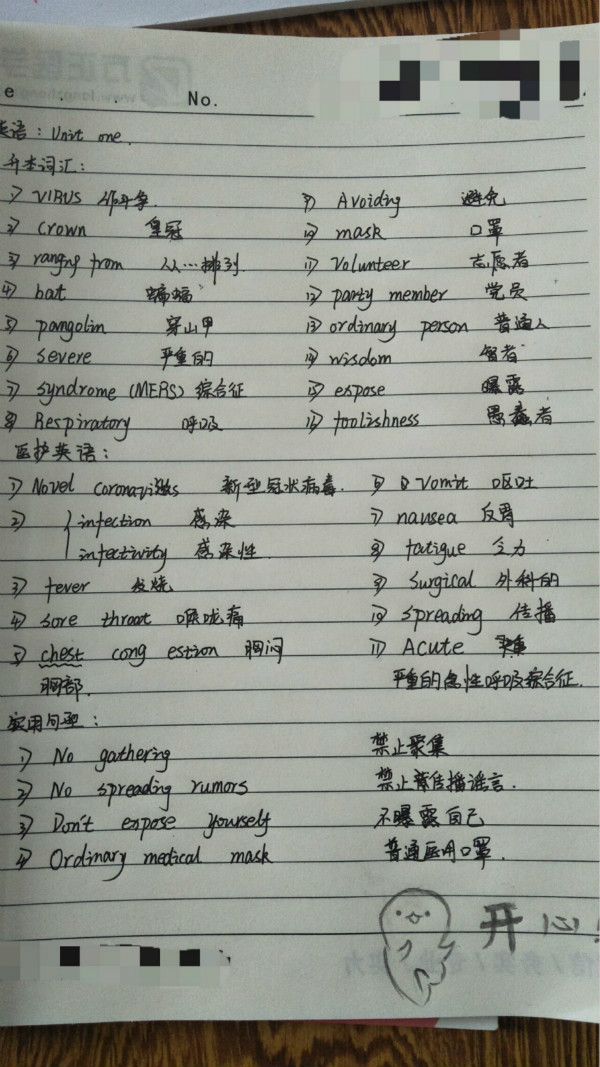 e No.
英语: Unit one.
开本词汇:
1) VIRUS
2) crown 皇冠
3) rangng from 从…排列.
4) bat 蝙蝠
5) pangolin 穿山甲
6) severe 严重的
7) syndrome (MERS) 综合征
8) Respiratory 呼吸
9) Avoiding 避免
10) mask 口罩
11) Volunteer 志愿者
12) party member 党员
13) ordinary person 普通人
14) wisdom 智者
15) espose 曝露
17) foolishness 愚蠢者
医护英语:
1) Novel coronavirus 新型冠状病毒.
2) infection 感染
infectivity 感染性.
3) fever 发烧
4) sore throat 喉咙痛
5) chest cong estion 胸闷
胸部.
6) Vomit 呕吐
7) nausea 反胃
8) fatigue 乏力
9) Surgical 外科的
10) spreading 传播
11) Acute
严重的急性呼吸综合征.
实用句型:
1) No gathering 禁止聚集
2) No spreading rumors 禁止传播谣言.
3) Don't expose yourself 不曝露自己
4) Ordinary medical mask 普通医用口罩.
开心!